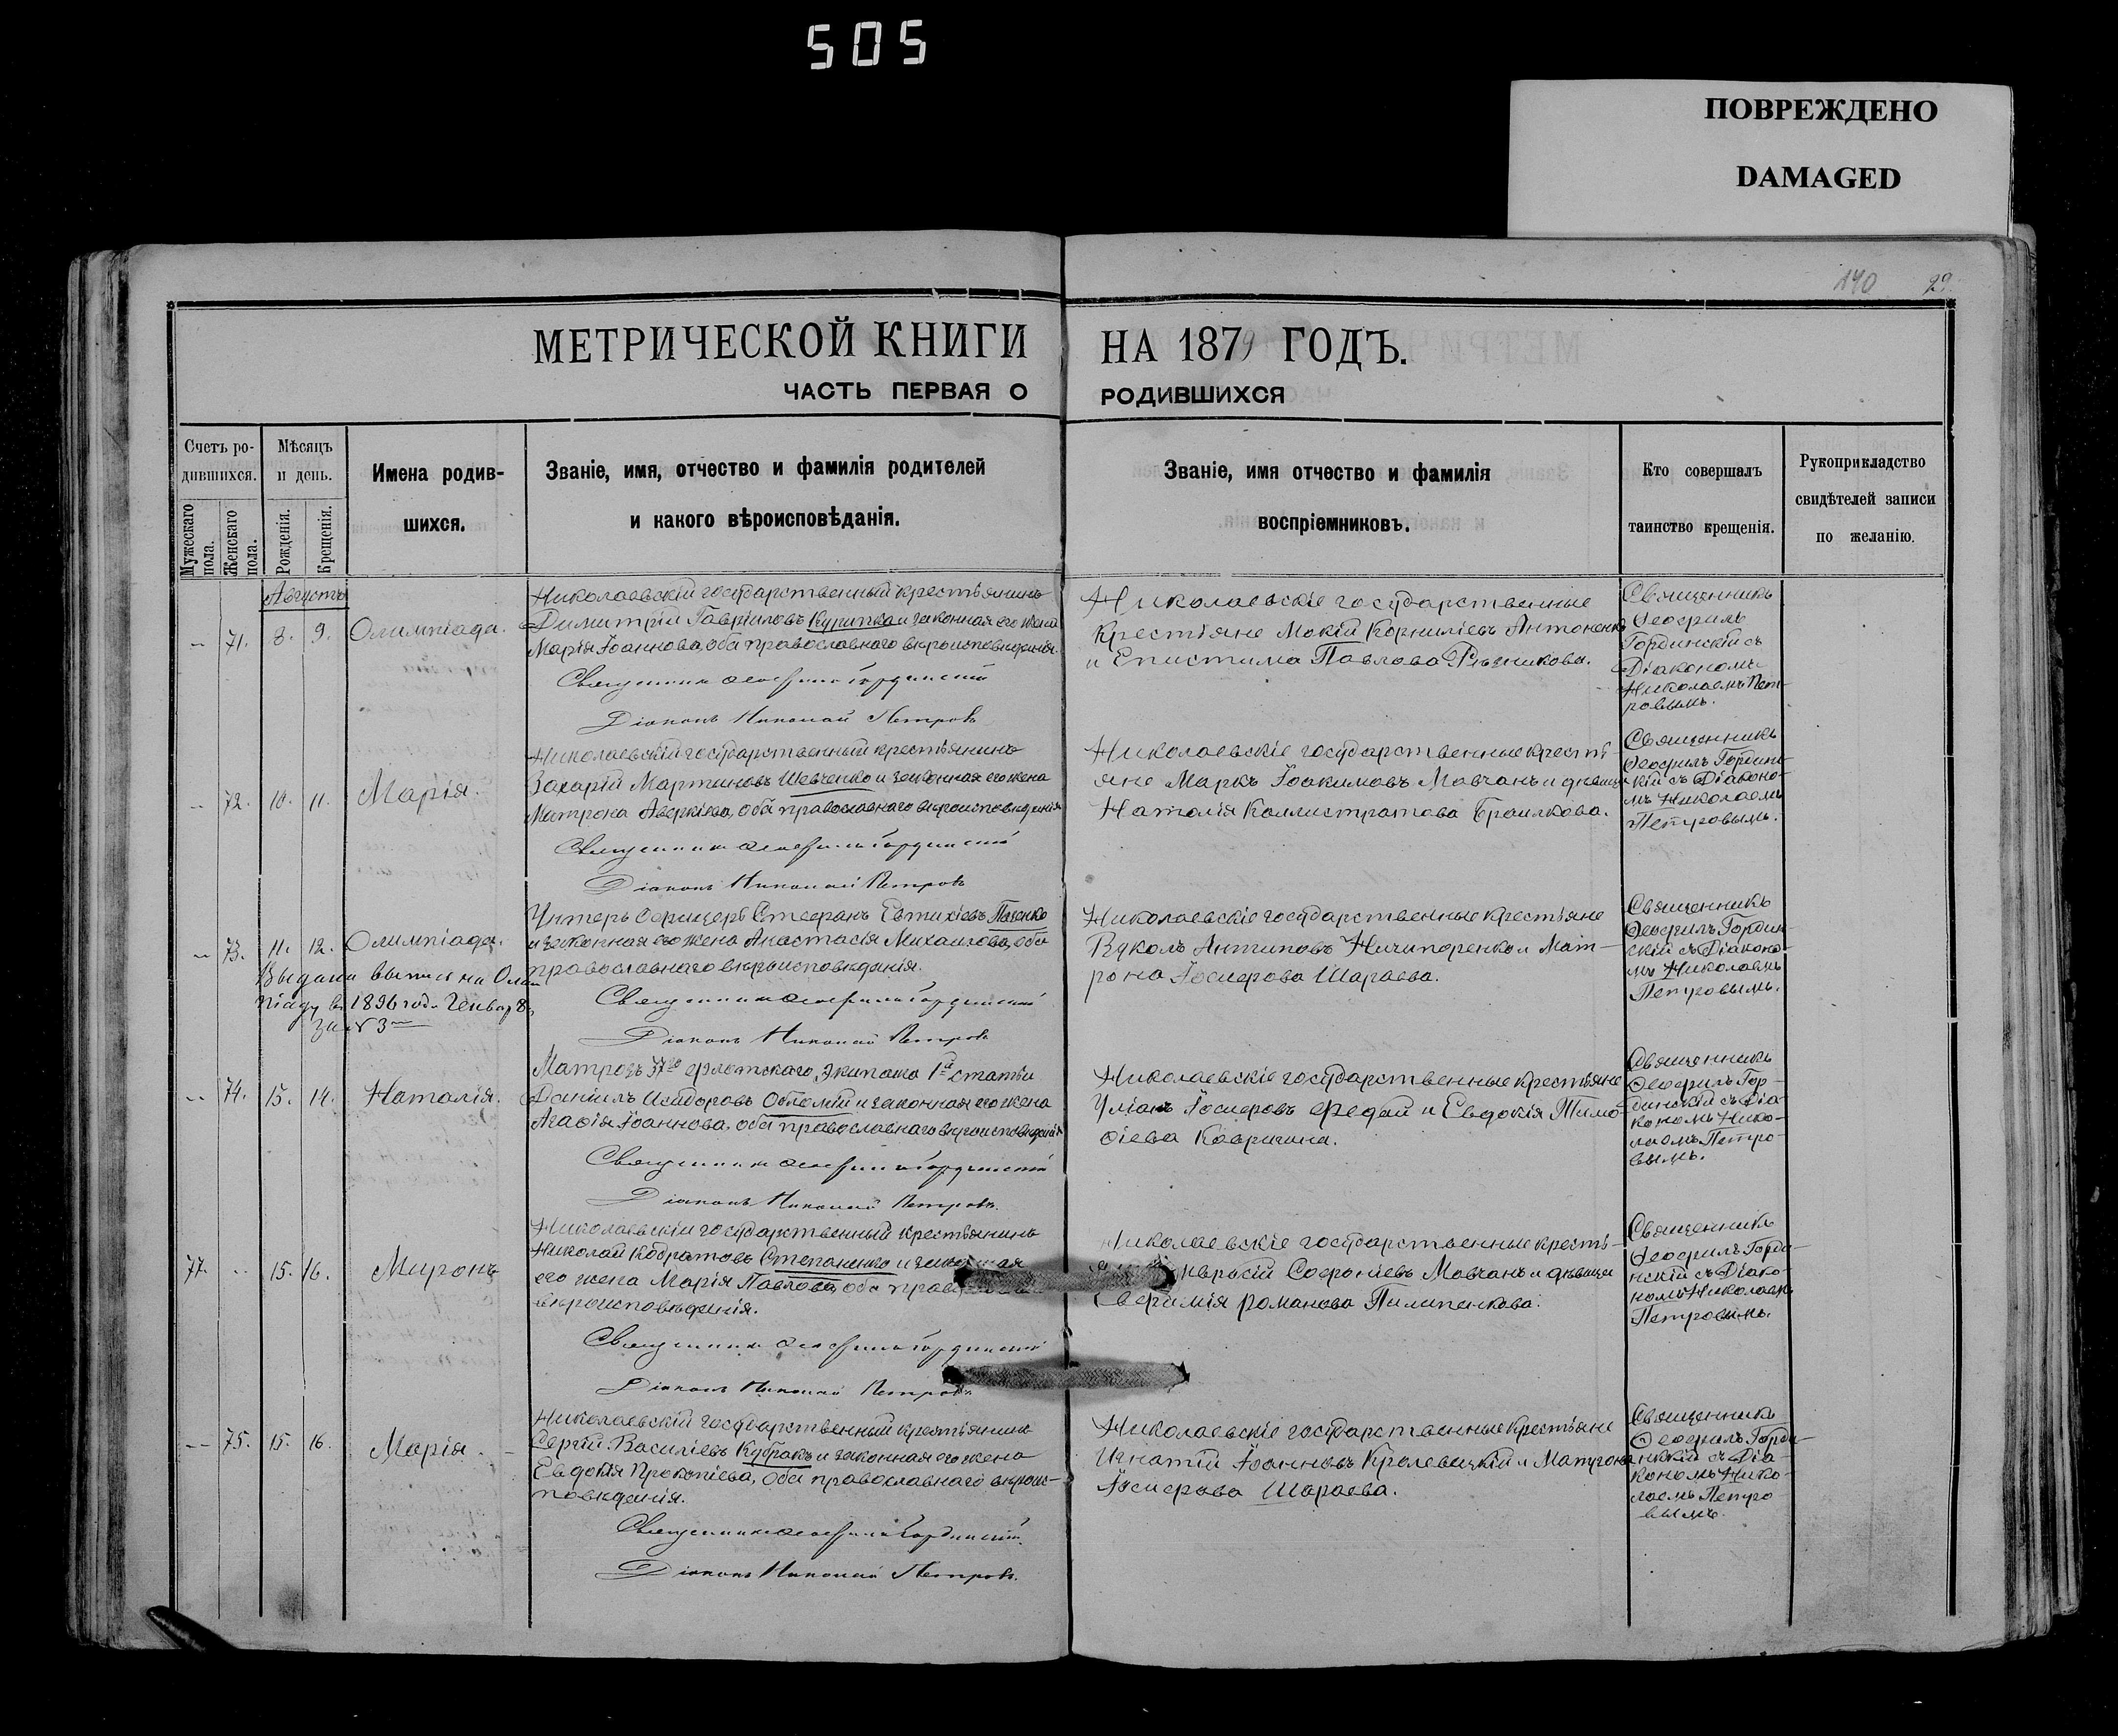 505
ПОВРЕЖДЕНО
DAMAGED
140 29.
МЕТРИЧЕСКОЙ КНИГИ НА 1879 ГОДЪ.
ЧАСТЬ ПЕРВАЯ О РОДИВШИХСЯ
Счетъ ро-
дившихся.
Мужескаго пола.
Женскаго пола.
Мѣсяцъ
и день.
Рожденія.
Крещенія.
Имена родив-
шихся.
Званіе, имя, отчество и фамилія родителей
и какого вѣроисповѣданія.
Званіе, имя отчество и фамилія
воспріемниковъ.
Кто совершалъ
таинство крещенія.
Рукоприкладство
свидѣтелей записи
по желанію.
Августъ
71. 8. 9. Олимпіада.
Николаевскій государственный крестьянинъ
Димитрій Гавріиловъ и законная его жена
Марія Іоаннова, оба православнаго вѣроисповѣданія.
Священникъ Ѳеофилъ Гординскій
Діаконъ Николай Петровъ
Николаевскіе государственные
крестьяне Мокій Корниліевъ Антоненко
и Епистима Павлова Рѣзникова.
Священникъ
Ѳеофилъ
Гординскій съ
Діакономъ
Николаемъ Пет-
ровымъ.
72. 10. 11. Марія.
Николаевскій государственный крестьянинъ
Захарій Мартиновъ Шевченко и законная его жена
Матрона Аверкіева, оба православнаго вѣроисповѣданія
Священникъ Ѳеофилъ Гординскій
Діаконъ Николай Петровъ
Николаевскіе государственные кресть-
яне Маркъ Іоакимовъ Мовчанъ и дѣвица
Наталія Каллистратова Браилкова.
Священникъ
Ѳеофилъ Гордин-
скій съ Діаконо-
мъ Николаемъ
Петровымъ.
73. 11. 12. Олимпіада.
Выдана выпись на Олим
піаду въ 1896 год. Генвар 8
за № 3
Унтеръ Офицеръ Стефанъ Евтихіевъ Паценко
и законная его жена Анастасія Михаилова, оба
православнаго вѣроисповѣданія.
Священникъ Ѳеофилъ Гординскій
Діаконъ Николай Петровъ
Николаевскіе государственные крестьяне
Вуколъ Антиповъ Ничипоренко и Мат-
рона Іосифова Шараева.
Священникъ
Ѳеофилъ Гордин-
скій съ Діаконо-
мъ Николаемъ
Петровымъ.
74. 15. 14. Наталія.
Матрозъ 37го флотскаго экипажа 1й статьи
Даніилъ Исидоровъ Обломій и законная его жена
Агафія Іоаннова, оба православнаго вѣроисповѣданія
Священникъ Ѳеофилъ Гординскій
Діаконъ Николай Петровъ.
Николаевскіе государственные крестьяне
Уліанъ Іосифовъ Федай и Евдокія Тимо-
ѳіева Ковригина.
Священникъ
Ѳеофилъ Гор-
динскій съ Діа-
кономъ Нико-
лаемъ Петро-
вымъ.
77. 15. 16. Миронъ
Николаевскій государственный крестьянинъ
Николай Кодратовъ Степаненко и законная
его жена Марія Павлова, оба
вѣроисповѣданія.
Священникъ Ѳеофилъ Гординскій
Діаконъ Николай Петровъ
Николаевскіе государственные кресть-
Софроніевъ Мовчанъ и дѣвица
Евфимія Романова Пилипенкова.
Священникъ
Ѳеофилъ Горди-
нскій съ Діако-
номъ Николаемъ
Петровымъ.
75. 15. 16. Марія.
Николаевскій государственный крестьянинъ
Сергій Василіевъ Кубракъ и законная его жена
Евдокія Прокопіева, оба православнаго вѣроис-
повѣданія.
Священникъ Ѳеофилъ Гординскій.
Діаконъ Николай Петровъ.
Николаевскіе государственные крестьяне
Игнатій Іоанновъ Кролевецкій и Матрона
Іосифова Шараева.
Священникъ
Ѳеофилъ Горди-
нскій съ Діа-
кономъ Нико-
лаемъ Петро
вымъ.